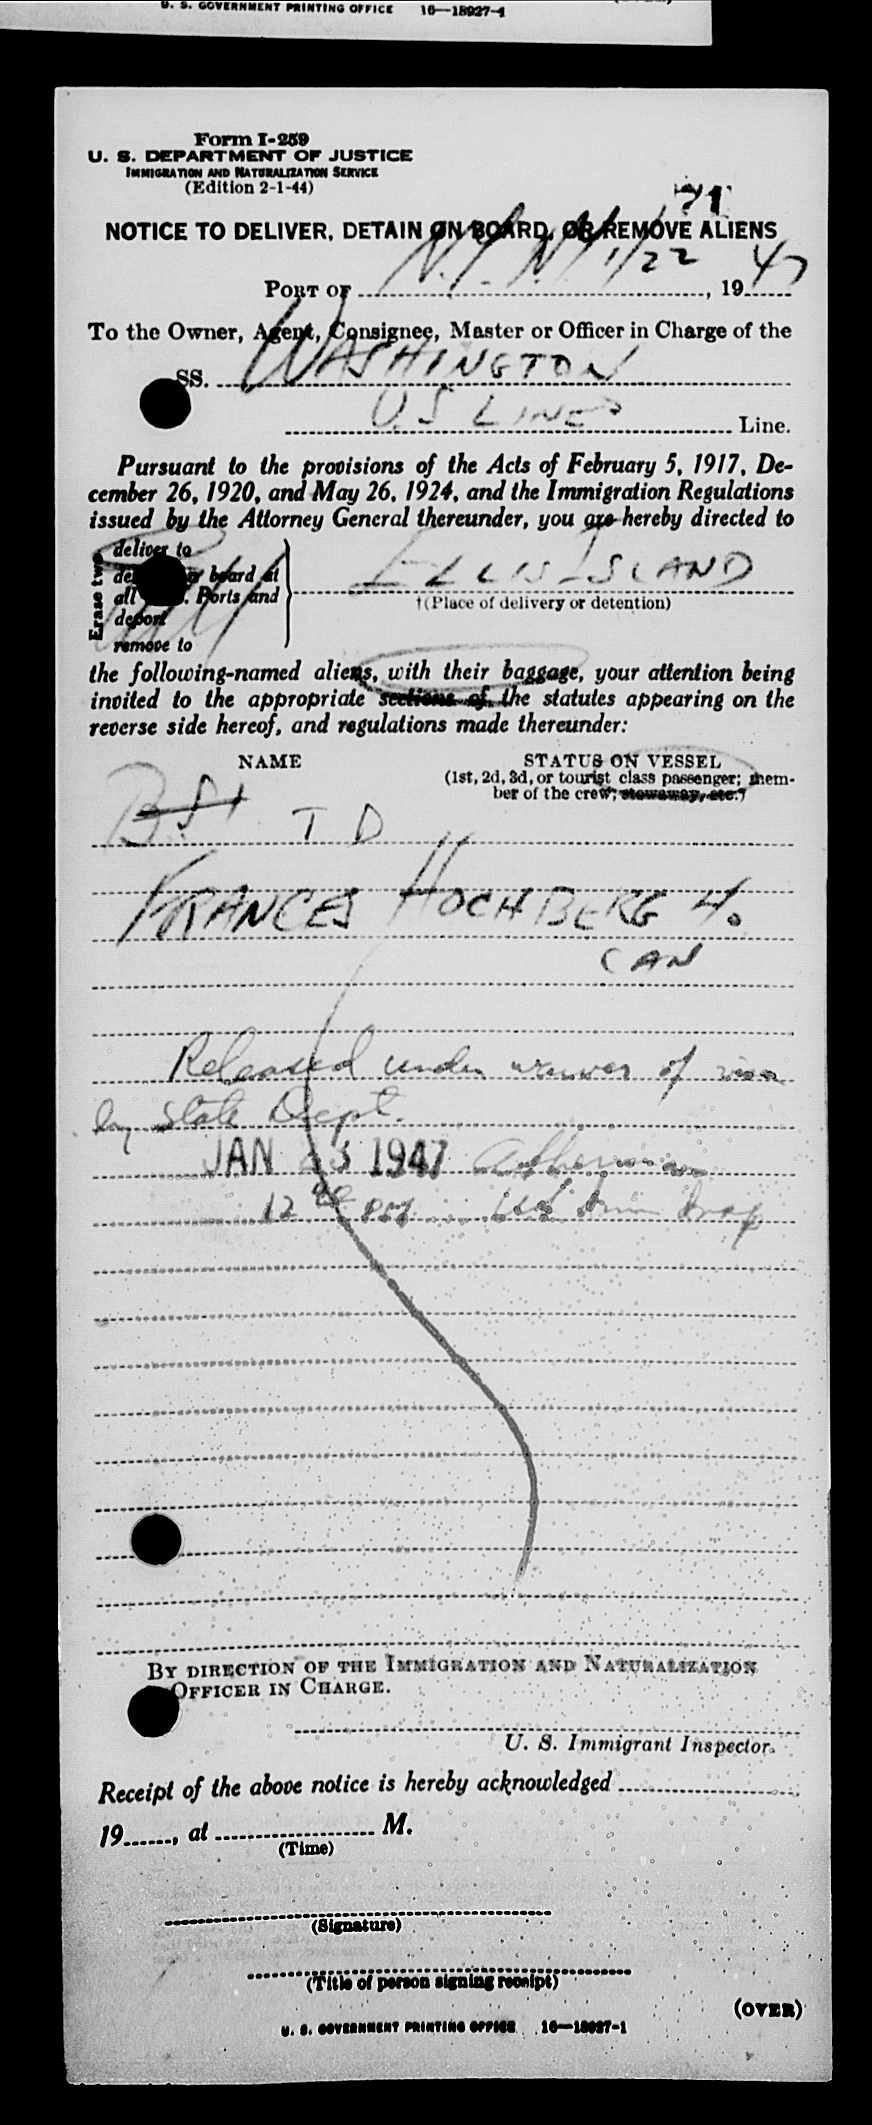 U. S. GOVERNMENT PRINTING OFFICE 16—18927-1
Form I-259
U. S. DEPARTMENT OF JUSTICE
IMMIGRATION AND NATURALIZATION SERVICE
(Edition 2-1-44)
71
NOTICE TO DELIVER, DETAIN ON BOARD, OR REMOVE ALIENS
PORT OF N.Y. N.Y. 1/22, 1947
To the Owner, Agent, Consignee, Master or Officer in Charge of the
SS. WASHINGTON
U.S LINES Line.
Pursuant to the provisions of the Acts of February 5, 1917, De-
cember 26, 1920, and May 26, 1924, and the Immigration Regulations
issued by the Attorney General thereunder, you are hereby directed to
Erase two
deliver to
board at
all Ports and
deport
remove to
ELLIS ISLAND
†(Place of delivery or detention)
the following-named aliens, with their baggage, your attention being
invited to the appropriate sections of the statutes appearing on the
reverse side hereof, and regulations made thereunder:
NAME STATUS ON VESSEL
(1st, 2d, 3d, or tourist class passenger; mem-
ber of the crew; stowaway, etc.)
T D
FRANCES HOCHBERG 4.
CAN
Released under waiver of visa
by State Dept.
JAN 23 1947
12 PM
BY DIRECTION OF THE IMMIGRATION AND NATURALIZATION
OFFICER IN CHARGE.
U. S. Immigrant Inspector.
Receipt of the above notice is hereby acknowledged
19......, at .................... M.
(Time)
(Signature)
(Title of person signing receipt)
(OVER)
U. S. GOVERNMENT PRINTING OFFICE 16—18927-1